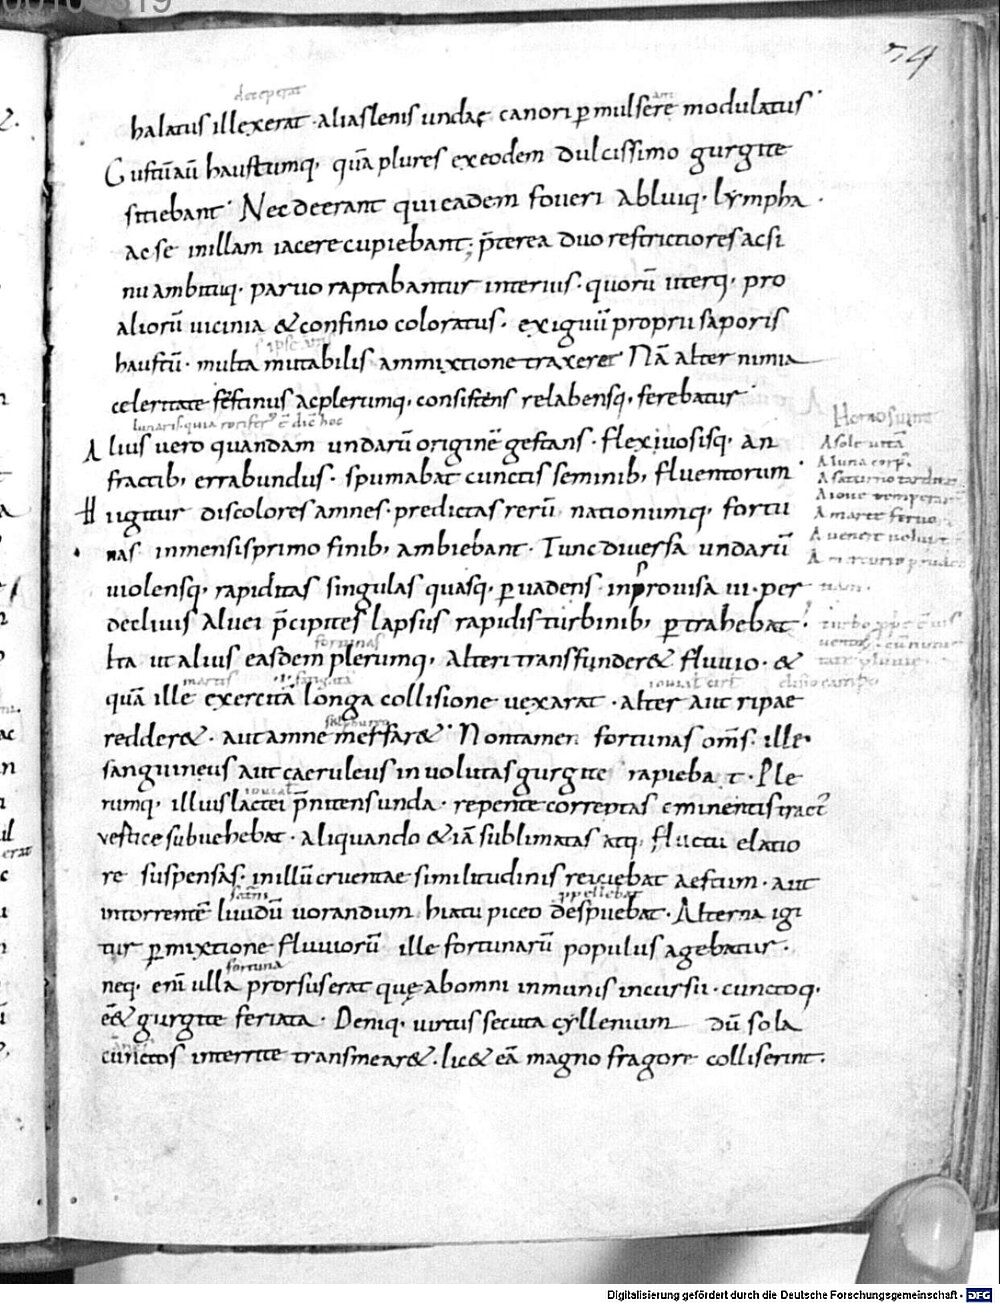 74
deceperat
halatus illexerat · alias lenis undae canori ꝑmulsere modulatus ·
Gustū aū haustumq; quā plures ex eodem dulcissimo gurgite
sitiebant · Nec deerant qui eadem foueri abluiq; lympha ·
ac se in illam iacere cupiebant; p̄terea duo restrictiores ac si
nu ambituq; paruo raptabantur interius · quorū uterq; pro
aliorū uicinia & confinio coloratus · exiguū proprii saporis
haustū · multa mutabilis ammixtione traxeret Nā alter nimia
celeritate festinus ac plerumq; consistens relabensq; ferebatur
Alius uero quandam undarū originē gestans · flexuosisq; an
fractib; errabundus · spumabat cunctis seminib; fluentorum ·
H ii gitur discolores amnes · predictas rerū nationumq; fortu
nas inmensis primo finib; ambiebant · Tunc diuersa undarū
uiolensq; rapiditas singulas quasq; ꝑuadens · inprouisa ui · per
decliuis aluei p̄cipites lapsus rapidis turbinib; ꝑtrahebat ·
fortunas
Ita ut alius easdem plerumq; alteri transfunder& fluuio · &
martis
quā ille exercitā longa collisione uexarat · alter aut ripae
redder& · aut amne mersar& · Non tamen fortunas om̄s · ille
sanguineus aut caeruleus inuolutas gurgite rapiebat · Ple
rumq; illius lactei p̄nitens unda · repente correptas eminentis tract
uestice subuehebat · aliquando & iā sublimatas atq; fluctu elatio
re suspensas · in illū cruentae similitudinis reiciebat aestum · aut
in torrentē liuidū uorandum hiatu piceo despuebat · Alterna igi
tur ꝑmixtione fluuiorū ille fortunarū populus agebatur ·
fortuna
neq; eni ulla prorsus erat quę ab omni inmunis incursu · cunctoq;
ē& gurgite feriata · Deniq; uirtus secuta cyllenium dū sola
cunctos interrite transmear& · lic& eā magno fragore colliserint ·
A sole uitā
A luna corp;
A saturno tarditat
A ioue temperat
A marte feruo
Digitalisierung gefördert durch die Deutsche Forschungsgemeinschaft - DFG